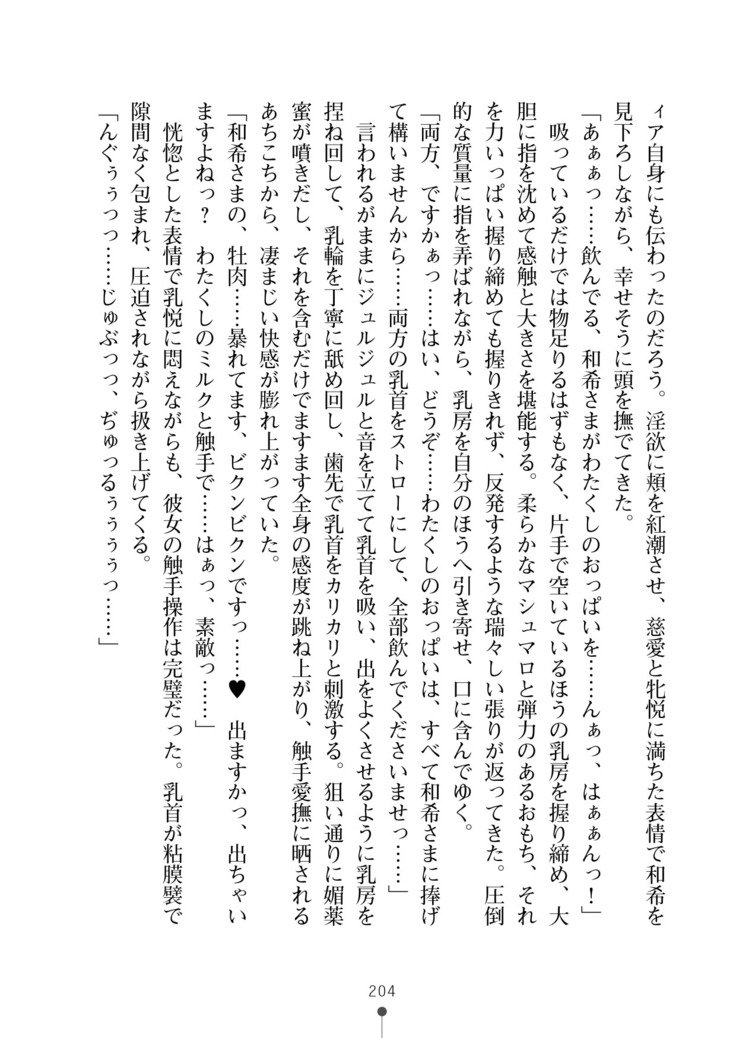 ィア自身にも伝わったのだろう。淫欲に頬を紅潮させ、慈愛と牝悦に満ちた表情で和希を
見下ろしながら、幸せそうに頭を撫でてきた。
「あぁぁっ……飲んでる、和希さまがわたくしのおっぱいを……んぁっ、はぁぁんっ！」
　吸っているだけでは物足りるはずもなく、片手で空いているほうの乳房を握り締め、大
胆に指を沈めて感触と大きさを堪能する。柔らかなマシュマロと弾力のあるおもち、それ
を力いっぱい握り締めても握りきれず、反発するような瑞々しい張りが返ってきた。圧倒
的な質量に指を弄ばれながら、乳房を自分のほうへ引き寄せ、口に含んでゆく。
「両方、ですかぁっ……はい、どうぞ……わたくしのおっぱいは、すべて和希さまに捧げ
て構いませんから……両方の乳首をストローにして、全部飲んでくださいませっ……」
　言われるがままにジュルジュルと音を立てて乳首を吸い、出をよくさせるように乳房を
捏ね回して、乳輪を丁寧に舐め回し、歯先で乳首をカリカリと刺激する。狙い通りに媚薬
蜜が噴きだし、それを含むだけでますます全身の感度が跳ね上がり、触手愛撫に晒される
あちこちから、凄まじい快感が膨れ上がっていた。
「和希さまの、牡肉……暴れてます、ビクンビクンですっ……♥　出ますかっ、出ちゃい
ますよねっ？　わたくしのミルクと触手で……はぁっ、素敵っ……」
　恍惚とした表情で乳悦に悶えながらも、彼女の触手操作は完璧だった。乳首が粘膜襞で
隙間なく包まれ、圧迫されながら扱き上げてくる。
「んぐぅぅっっ……じゅぶっっ、ぢゅっるぅぅぅぅっ……」
204